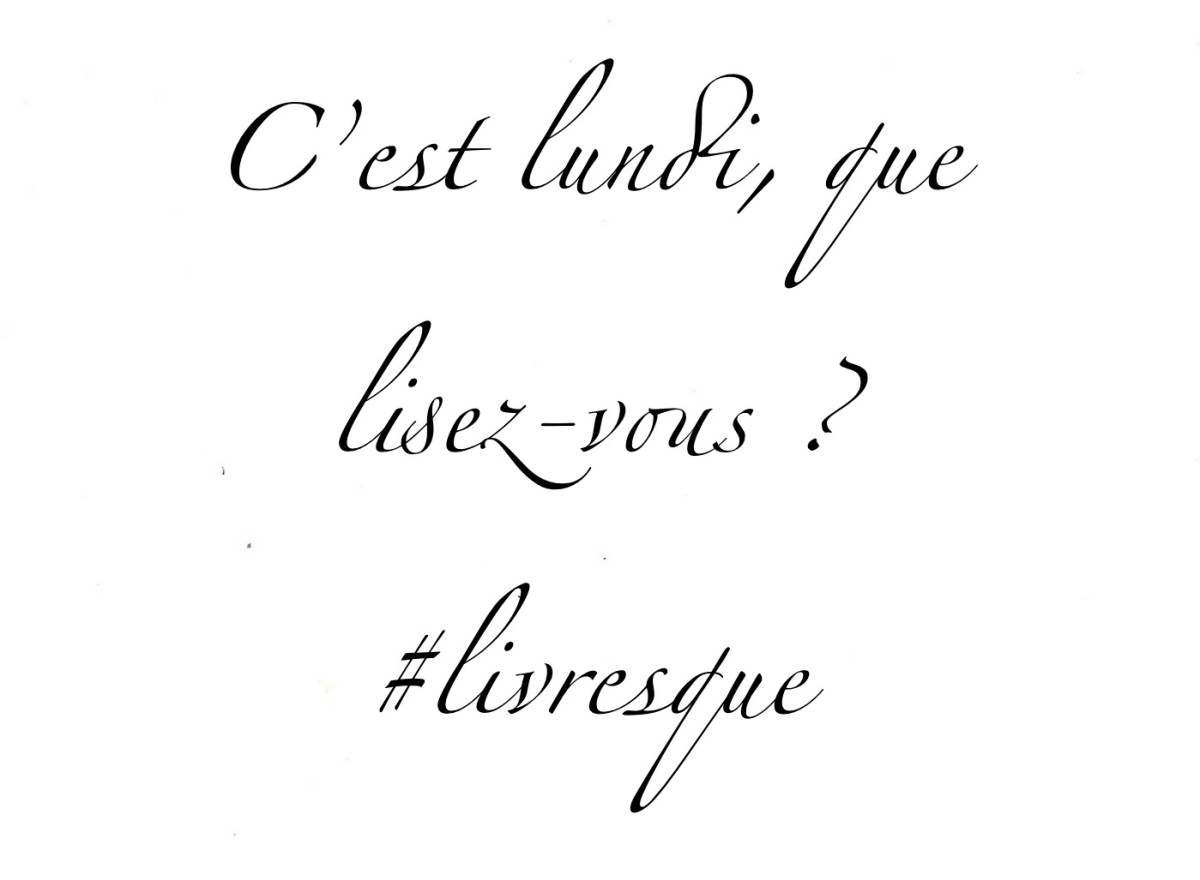 C'est lundi, que
lisez-vous ?
#livresque